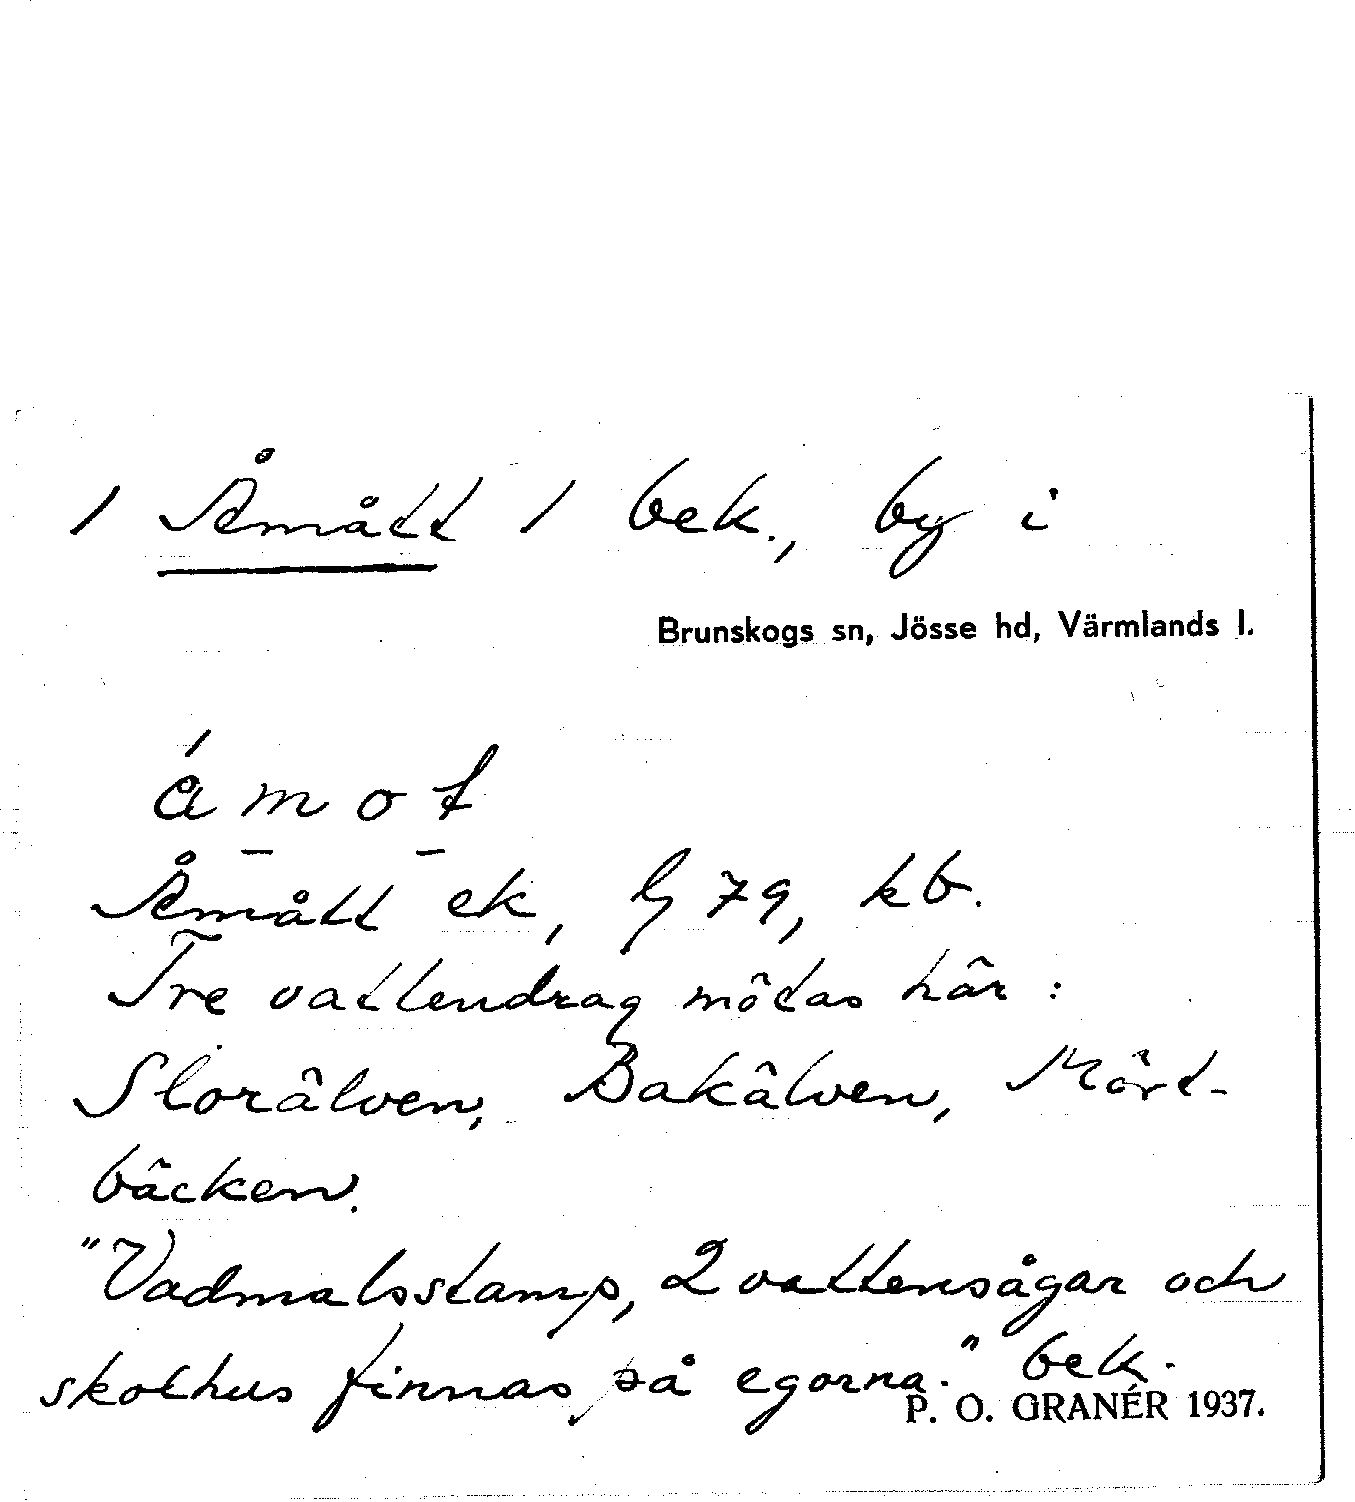 / Åmått / bek., by i
Brunskogs sn, Jösse hd, Värmlands l.
ámot
Åmått ek, G 79, kb.
Tre vattendrag mötas här:
Storälven, Bakälven, Mört-
bäcken.
"Vadmalsstamp, 2 vattensågar och
skolhus finnas på egorna." bek.
P. O. GRANÉR 1937.